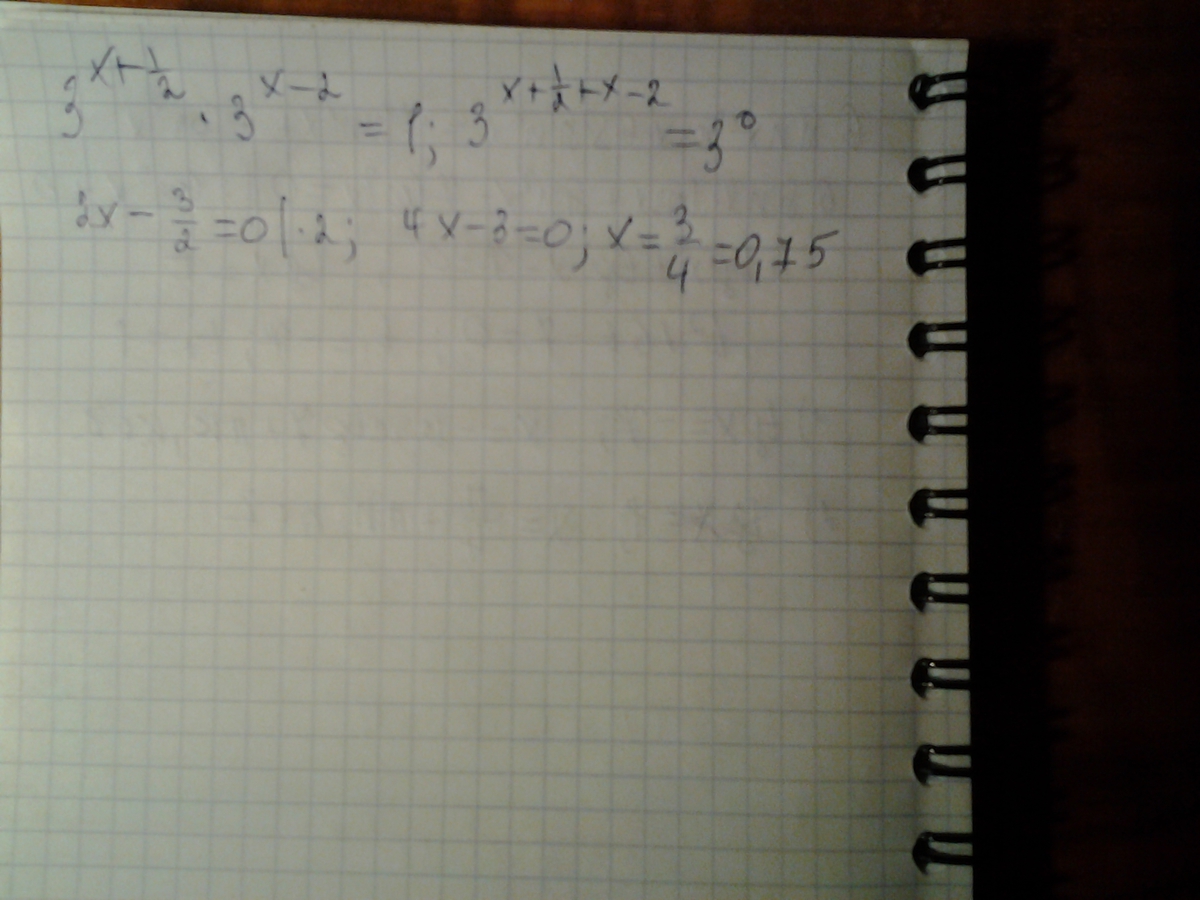 3^{x+\frac{1}{2}} · 3^{x-2} = 1; 3^{x+\frac{1}{2}+x-2} = 3^0
2x - \frac{3}{2} = 0 | · 2; 4x - 3 = 0; x = \frac{3}{4} = 0,75